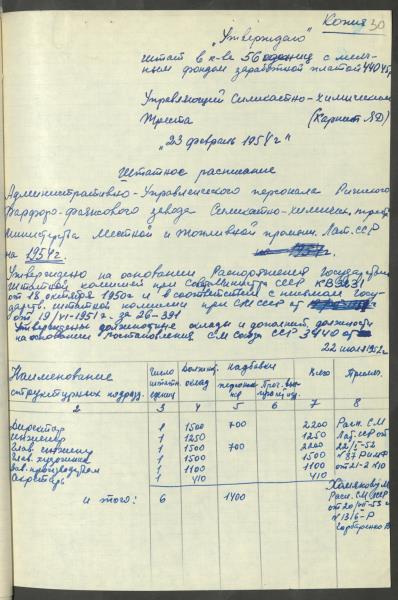 Копия 30
„Утверждаю"
штат в к-ве 56 единиц с месяч-
ным фондом заработной платой 44045
Управляющей Силикатно-химическим
Треста (Карп     )
„23 февраль 1954 г"
Штатное расписание
Административно-Управленческого персонала Рижского
Фарфоро-фаянсового завода Силикатно-химическ. треста
Министерства Местной и Топливной промыш. Лат. ССР
на 1954 г.
Утверждено на основании Распоряжения Государствен
Штатной комиссией при Сов. Министр. СССР
от 18 октября 1950 г и в соответствии с письмом Госу-
дарств. штатной комиссии при СМ СССР от
от 19/VI-1951 г. за 26-391
Утверждены должностные оклады и дополнит. должност
на основании Постановления СМ Союза ССР 3440 от
22 июля 1952 г.
Наименование структурных подразд. Число штатн. единиц Должнос. оклад Надбавки персональ Проч. Всего Примеч.
2 3 4 5 6 7 8
Директор 1 1500 700 2200 Расп. СМ
Инженер 1 1250 1250 Лат. ССР от
Глав. инженер 1 1500 700 2200
Глав. художник 1 1500 1500 № 37
Зав. производством 1 1100 1100 от 21-2
Секретарь 1 410 410
И того: 6 1400
Расп. СМ СССР
от 20/VII-53 г
№ 1316-Р